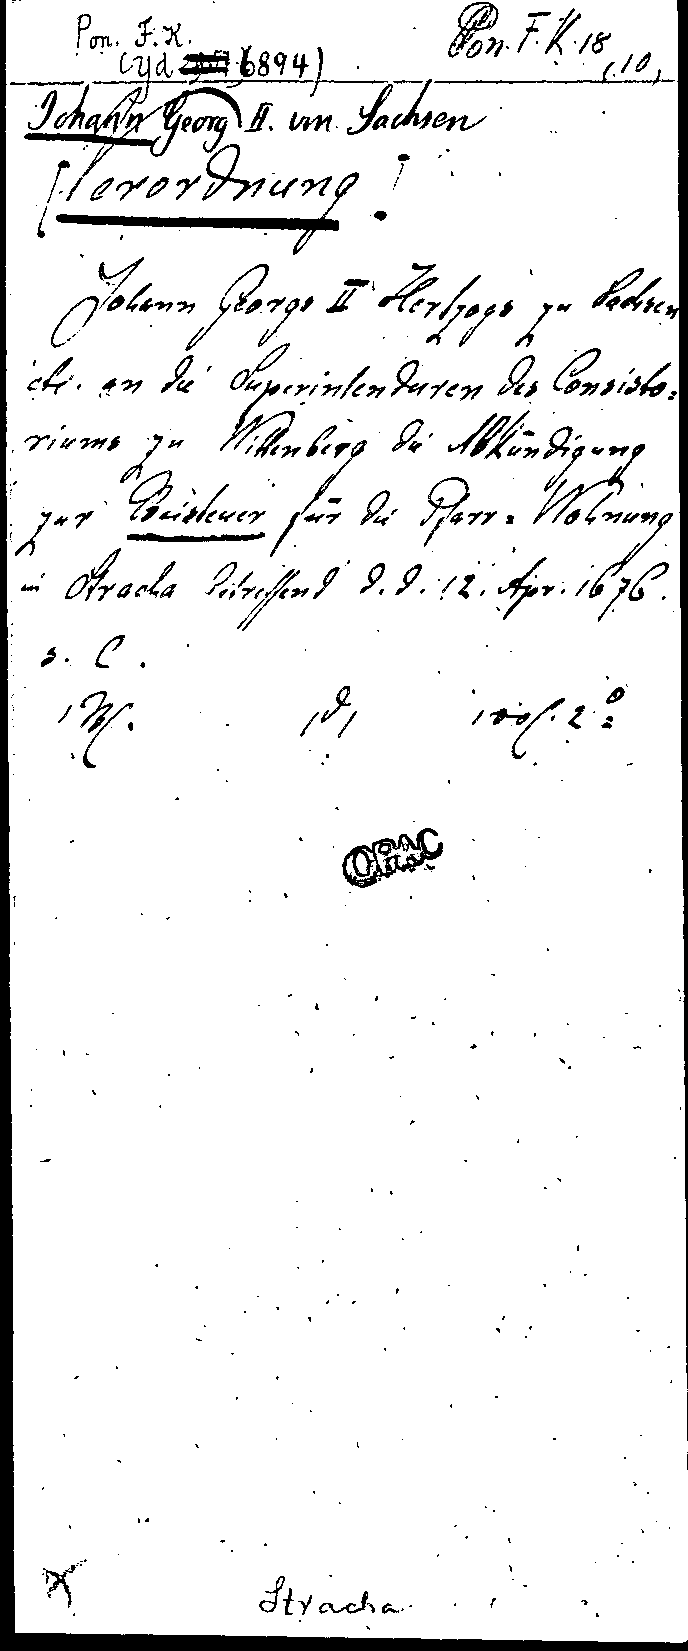 Pon. F. K.
Pon. F. K. 18
(Yd 6894)
,10,
Johann Georg II. von Sachsen
[Verordnung]
Johann George II Hertzogs zu Sachsen
etc. an die Superintenduren des Consisto=
riums zu Wittenberg die Abkündigung
zur Beisteuer für die Pfarr= Wohnung
in Stracha betreffend d. d. 12. Apr. 1676.
s. l.
2°
Stracha